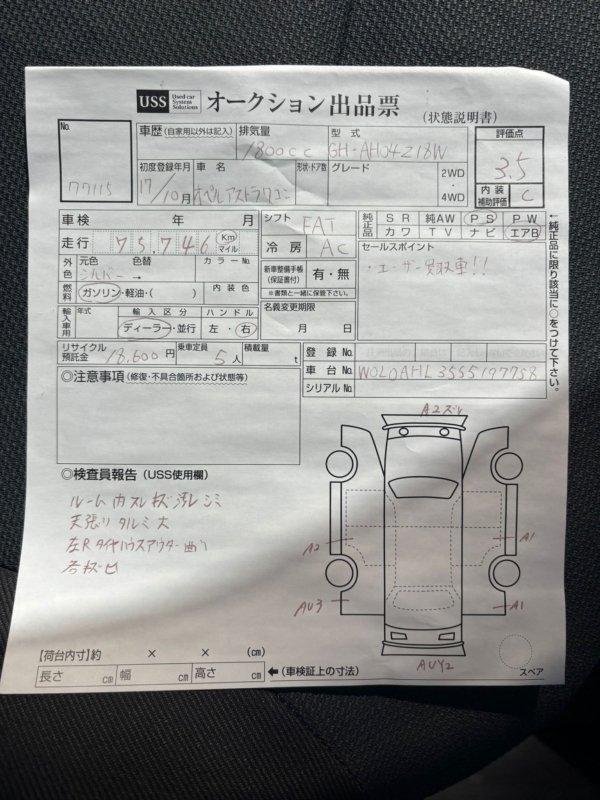 USS Used car System Solutions オークション出品票 (状態説明書)
No. 77115
車歴 (自家用以外は記入)
排気量 1800cc
型式 GH-AH04Z18W
評価点 3.5
内装補助評価 C
初度登録年月 17/10月
車名 オペルアストラワゴン
形状・ドア数
グレード
2WD・4WD
車検 年 月
シフト FAT
純正品 SR 純AW PS PW
カワ TV ナビ エアB
走行 75,746 Km マイル
冷房 AC
セールスポイント
・ユーザー買取車!!
外色 元色 シルバー 色替 → カラーNo.
新車整備手帳 (保証書付) 有・無
※書類と一緒に保管下さい。
燃料 ガソリン・軽油・( ) 内装色
名義変更期限 月 日
輸入車用 年式 輸入区分 ディーラー・並行 ハンドル 左・右
←純正品に限り該当に○をつけて下さい。
リサイクル預託金 18,600円
乗車定員 5人
積載量 t
登録No.
車台No. W0L0AHL3555197758
シリアルNo.
◎注意事項 (修復・不具合個所および状態等)
A2ズリ
◎検査員報告 (USS使用欄)
ルーム内スレキズ汚レシミ
天張りタルミ大
左Rタイヤハウスアウター曲り
各キズ凹
A2
A1
AU3
A1
AUY2
スペア
【荷台内寸】約 × × (cm)
長さ cm 幅 cm 高さ cm ←(車検証上の寸法)